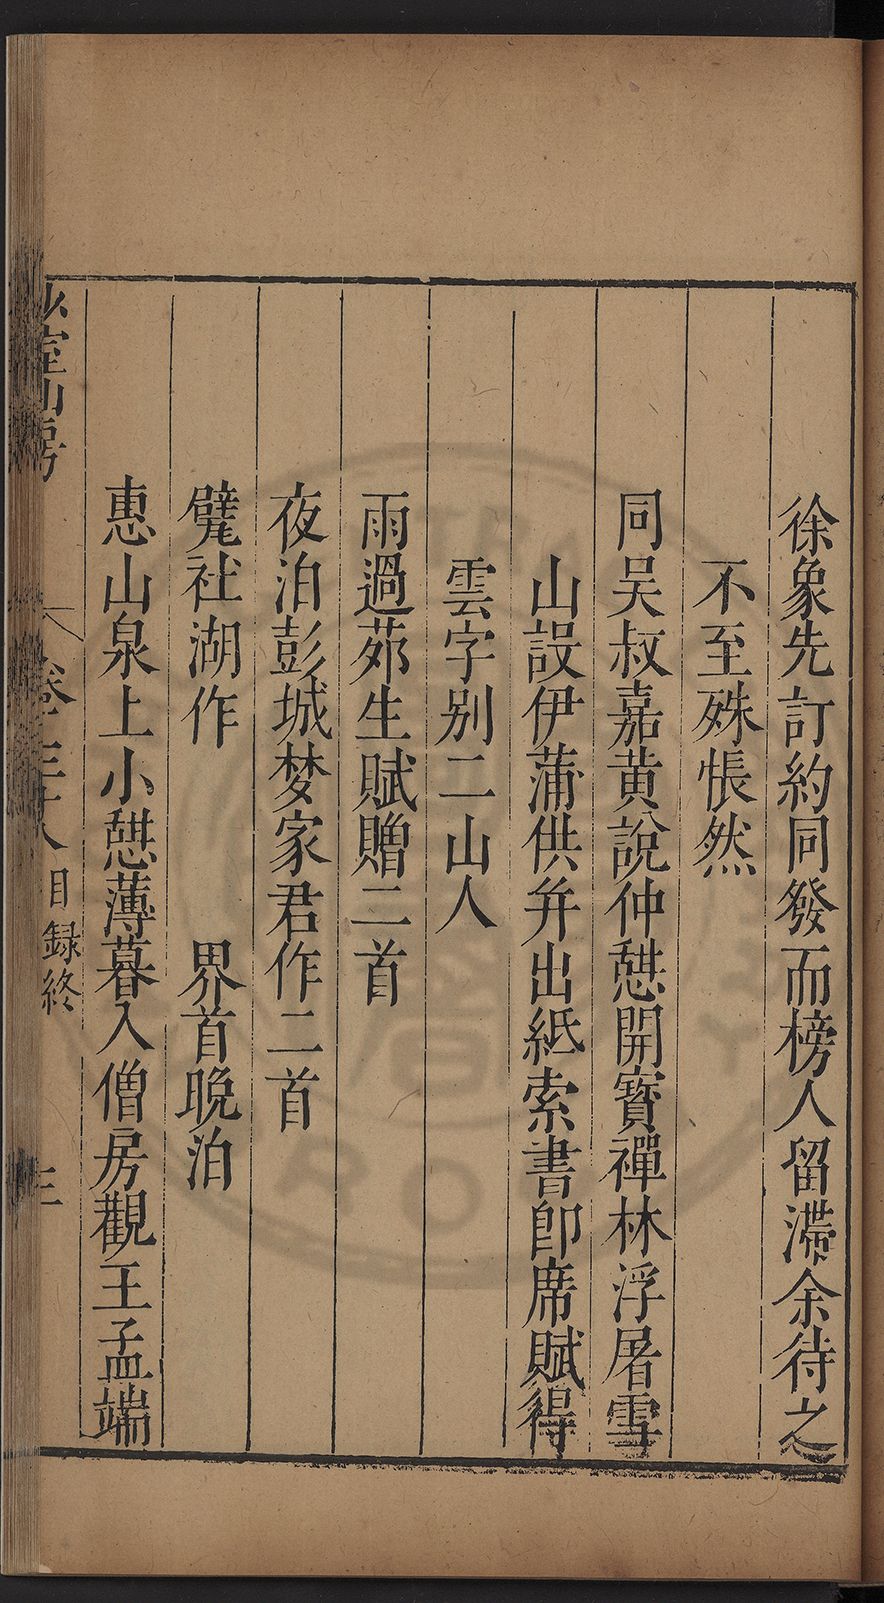 徐象先訂約同發而榜人留滯余待之
不至殊悵然
同吴叔嘉黄說仲憇開寳禪林浮屠雪
山設伊蒲供弁出紙索書卽席賦得
雲字别二山人
雨過茒生賦贈二首
夜泊彭城梦家君作二首
甓社湖作 界首晚泊
惠山泉上小憇薄暮入僧房觀王孟端
少室山房 卷三十八目録終 三